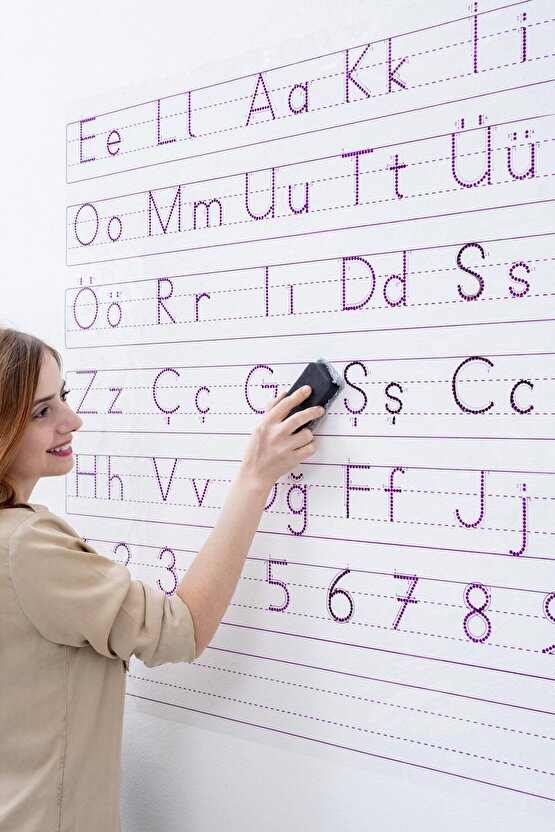 Ee Ll Aa Kk İi
Oo Mm Uu Tt Üü
Öö Rr Iı Dd Ss
Zz Çç G Şş Cc
Hh Vv ğ Ff Jj
2 3 5 6 7 8